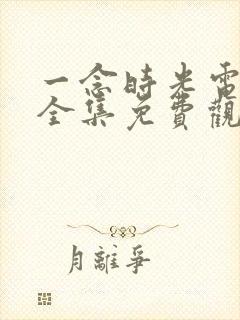 一念時光電
全集免費觀
月離爭